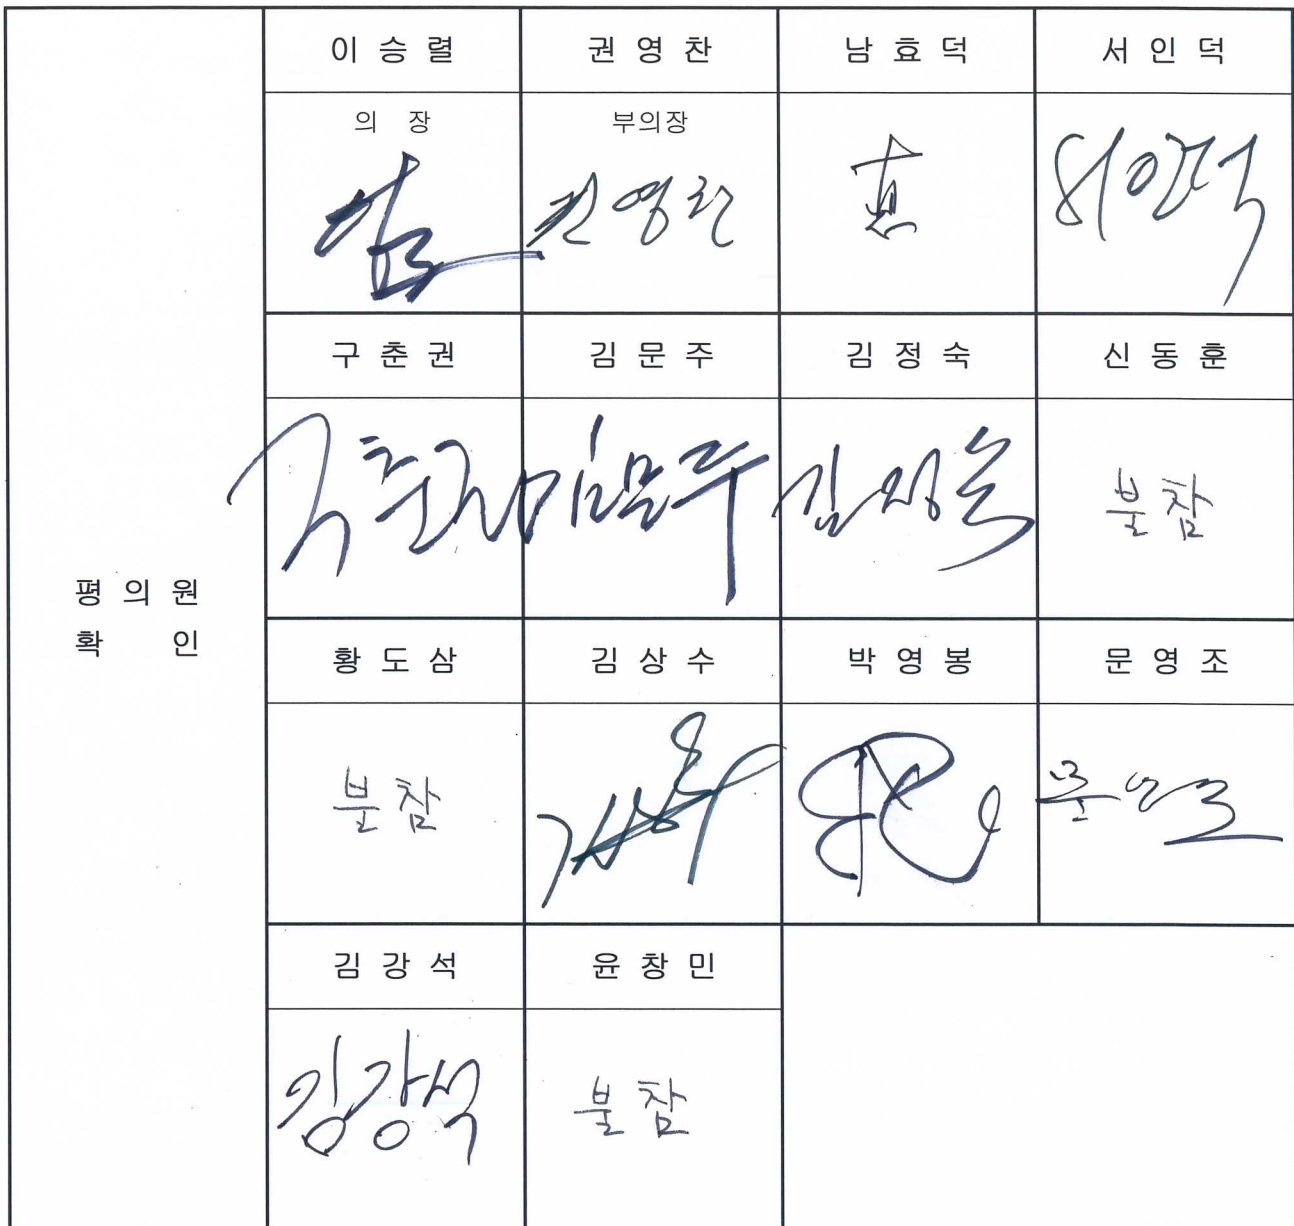 이승렬 권영찬 남효덕 서인덕
의 장 부의장
권영찬 서인덕
구춘권 김문주 김정숙 신동훈
구춘권 김문주 김정숙 불참
평의원
확 인
황도삼 김상수 박영봉 문영조
불참 김상수 문영조
김강석 윤창민
김강석 불참